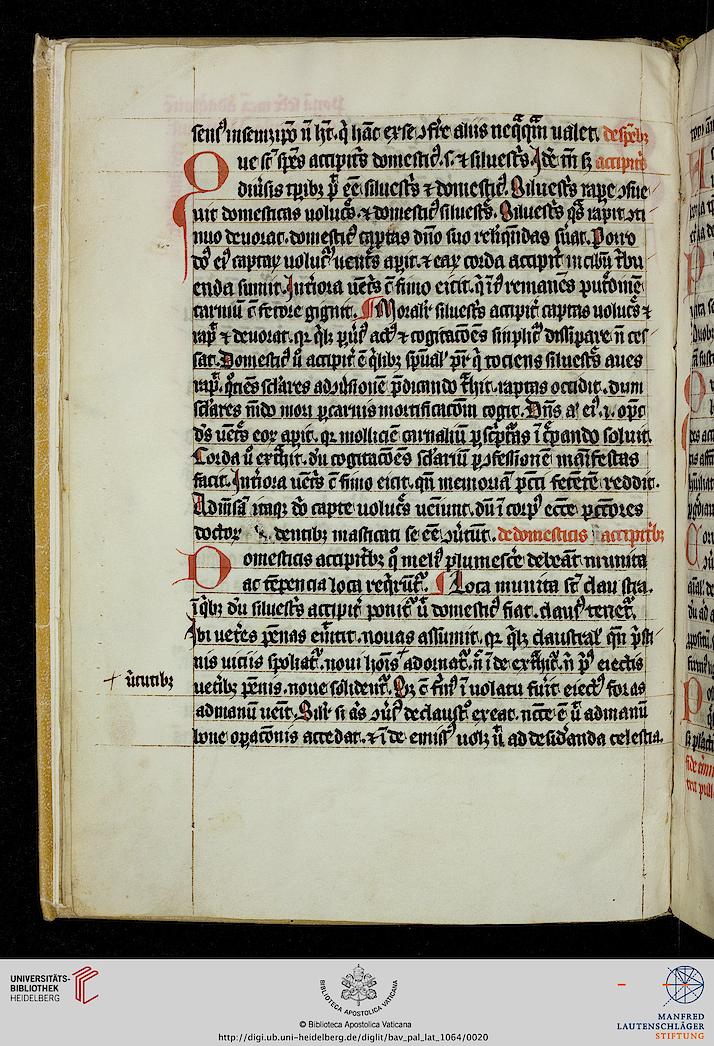 sens᷒ in semetip̄o n̄ hꝫt. q̇ hāc ex se ꝯferre aliis neq̄q̄m ualet. de spēbꝫ
Due s̄t spēs accipitrꝭ domestic᷒. s. ⁊ siluestrꝭ. Idē tn̄ sꝫ accipitrꝭ
diuīsis tꝑibꝫ p̄t eē siluestrꝭ ⁊ domestic᷒. Siluestrꝭ rape ꝯsue
uit domesticas uolucrꝭ. ⁊ domestic᷒ siluestrꝭ. Siluestrꝭ q̄s rapit ꝯti
nuo deuorat. domestic᷒ captas dn̄o suo reliq̄ndas seruat. Porro
dn̄s ei᷒ captaꝝ uolucrū uentrēs aꝑit. ⁊ eaꝝ corda accipitri in cibū t̄bu
enda sumit. Int̄iora uentrꝭ cū fimo eicit. q̇ īt᷒ remanēs putredinē
carniū cū fetore gignit. Moralit̄ siluestrꝭ accipit̄ captas uolucrꝭ ⁊
rapit ⁊ deuorat. qꝛ q̇lꝫ ꝑuers᷒ act᷒ ⁊ cogitacōēs simplicꝭ dissipare n̄ ces
sat. Domestic᷒ ū accipit̄ ē q̇libꝫ spūal᷒ pr̄ q̇ tociens siluestrꝭ aues
rapit. q̊ciēs sclares ad ꝯūsionē p̄dicando t̄hit. captas occidit. dum
sclares mūdo mori ꝑ carnis mortificacōm cogit. Dn̄s aū ei᷒. i. op̄c
ds uentrēs eoꝝ aꝑit. qꝛ molliciē carnaliū ꝑ scripturas īcrepando soluit.
Corda ū ext̄hit. dū cogitacōēs sclariū ꝑ ꝯfessionē manifestas
facit. Int̄iora uentrꝭ cū fimo eicit. qn̄ memoriā pct̄i fetentē reddit.
Ad mensā itaqꝫ dn̄i capte uolucrꝭ ueniunt. dū ī corp᷒ ecc̄e pct̄ores
doctoꝝ dentibꝫ masticati se eē ꝯūtūt. de domesticis accipitr̄bꝫ
Domesticis accipitr̄bꝫ q̊ meli᷒ plumescere debeāt munita
ac tēpencia loca reqrūt᷒. Loca munita s̄t claustra.
ī q̇bꝫ dū siluestrꝭ accipit̄ ponit᷒ ut domestic᷒ fiat. claus᷒ tenet᷒.
Ibi ueteres pēnas emittit. nouas assumit. qꝛ q̇lꝫ claustral᷒ qn̄ p̄sti
nis uiciis spoliat᷒. noui hoīs + adornat᷒. n̄ īde ext̄hit᷒ n̄ p̄us eiectis
ueteribꝫ pēnis. noue solident᷒. Qꝫ cū firm᷒ ī uolatu fuīt eiect᷒ foras
ad manū ueīt. Sil᷒r si aliq̄s ꝯūs᷒ de claustro exeat. nccē ē ut ad manū
bone oꝑacōnis accedat. ⁊ īde emiss᷒ uolꝫ ut ad desidanda celestia.
+ ūtutibꝫ
UNIVERSITÄTS-
BIBLIOTHEK
HEIDELBERG
BIBLIOTECA APOSTOLICA VATICANA
© Biblioteca Apostolica Vaticana
http://digi.ub.uni-heidelberg.de/diglit/bav_pal_lat_1064/0020
MANFRED
LAUTENSCHLÄGER
STIFTUNG